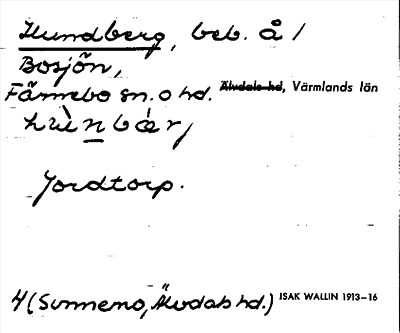 Hundberg, beb. å /
Bosjön,
Färnebo sn. o hd. Älvdals hd, Värmlands län
hùnbǽrj
Jordtorp.
4 (Sunnemo, Älvdals hd.) ISAK WALLIN 1913–16